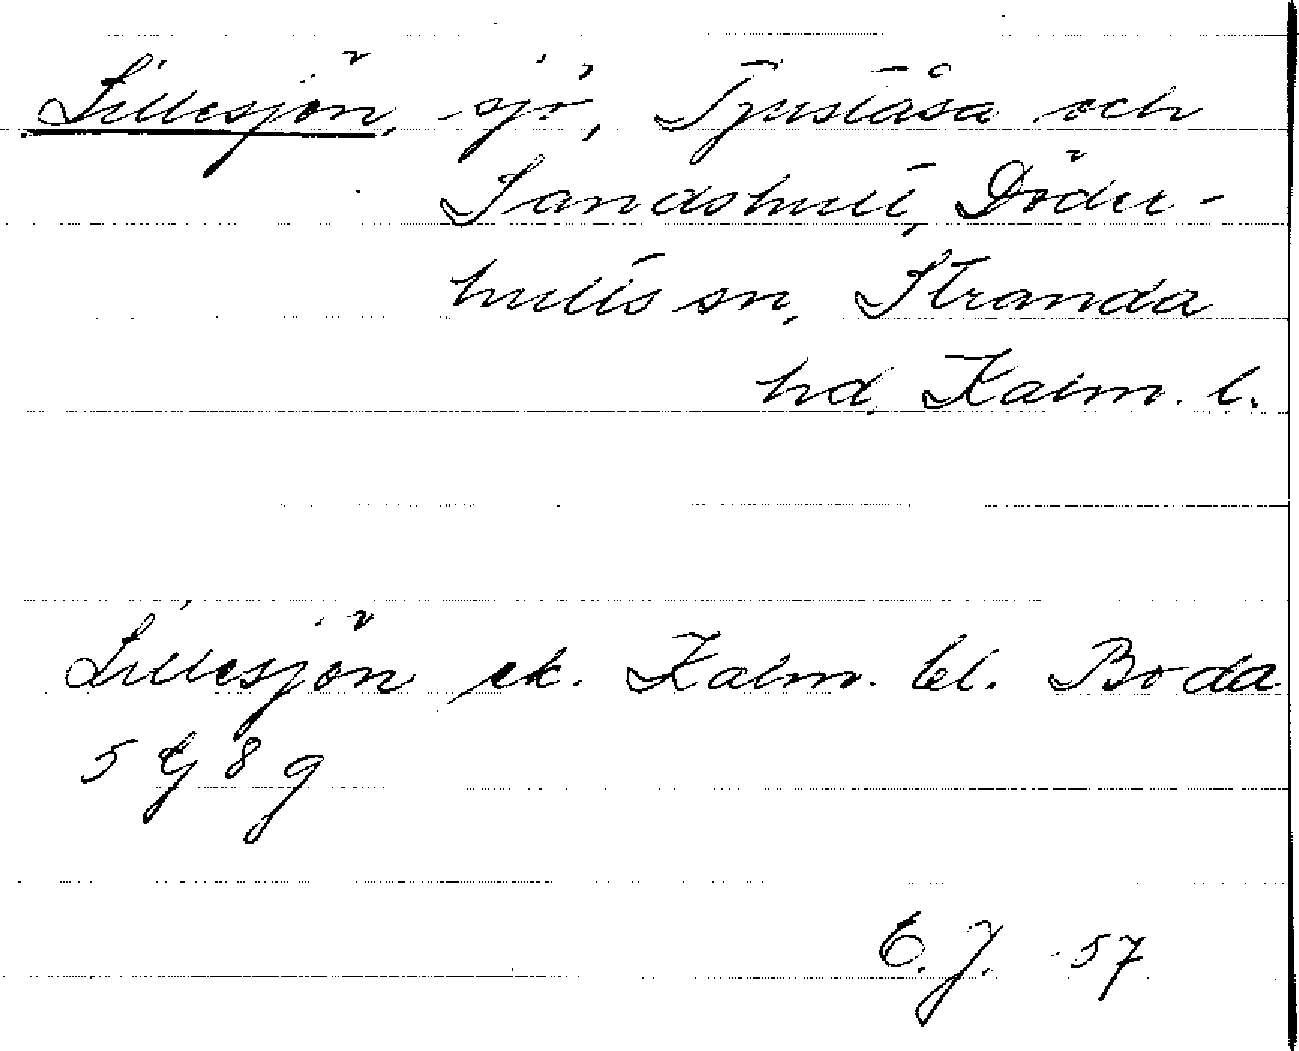 Lillesjön, sjö, Tjuståsa och
Sandshult, Döder-
hults sn, Stranda
hd, Kalm. l.
Lillesjön ek. Kalm. bl. Boda
5 G 8 g
E. J. 57